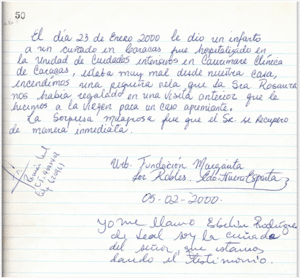 50
El día 23 de Enero 2000 le dio un infarto
a un cuñado en Caracas fue hospitalizado en
la Unidad de Cuidados intensivos en Caurimare Clínica
de Caracas, estaba muy mal desde nuestra casa,
encendimos una pequeña vela que la Sra Rosaura
nos había regalado en una visita anterior que le
hicimos a la Virgen para un caso apremiante.
La Sorpresa milagrosa fue que el Se recupero
de manera inmediata.
Urb. Fundación Margarita
Los Robles. Edo Nueva Esparta
05-02-2000.
yo me llamo Rodríguez
de Leal soy la cuñada
del señor que estamos
dando el testimonio.